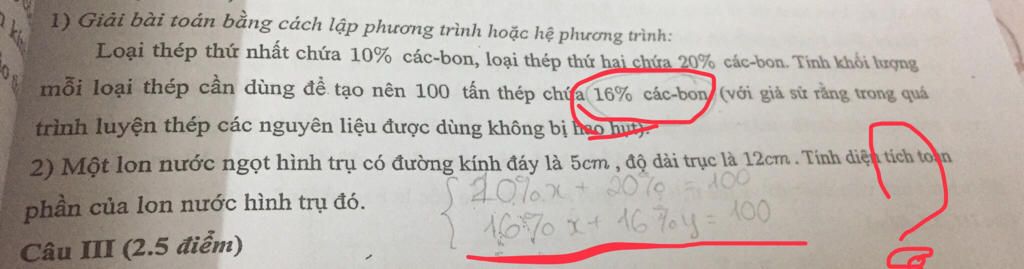 1) Giải bài toán bằng cách lập phương trình hoặc hệ phương trình:
Loại thép thứ nhất chứa 10% các-bon, loại thép thứ hai chứa 20% các-bon. Tính khối lượng
mỗi loại thép cần dùng để tạo nên 100 tấn thép chứa 16% các-bon (với giả sử rằng trong quá
trình luyện thép các nguyên liệu được dùng không bị hao hụt).
2) Một lon nước ngọt hình trụ có đường kính đáy là 5cm, độ dài trục là 12cm. Tính diện tích toàn
phần của lon nước hình trụ đó.
{ 10%x + 20% = 100
16% x + 16%y = 100
Câu III (2.5 điểm)
?